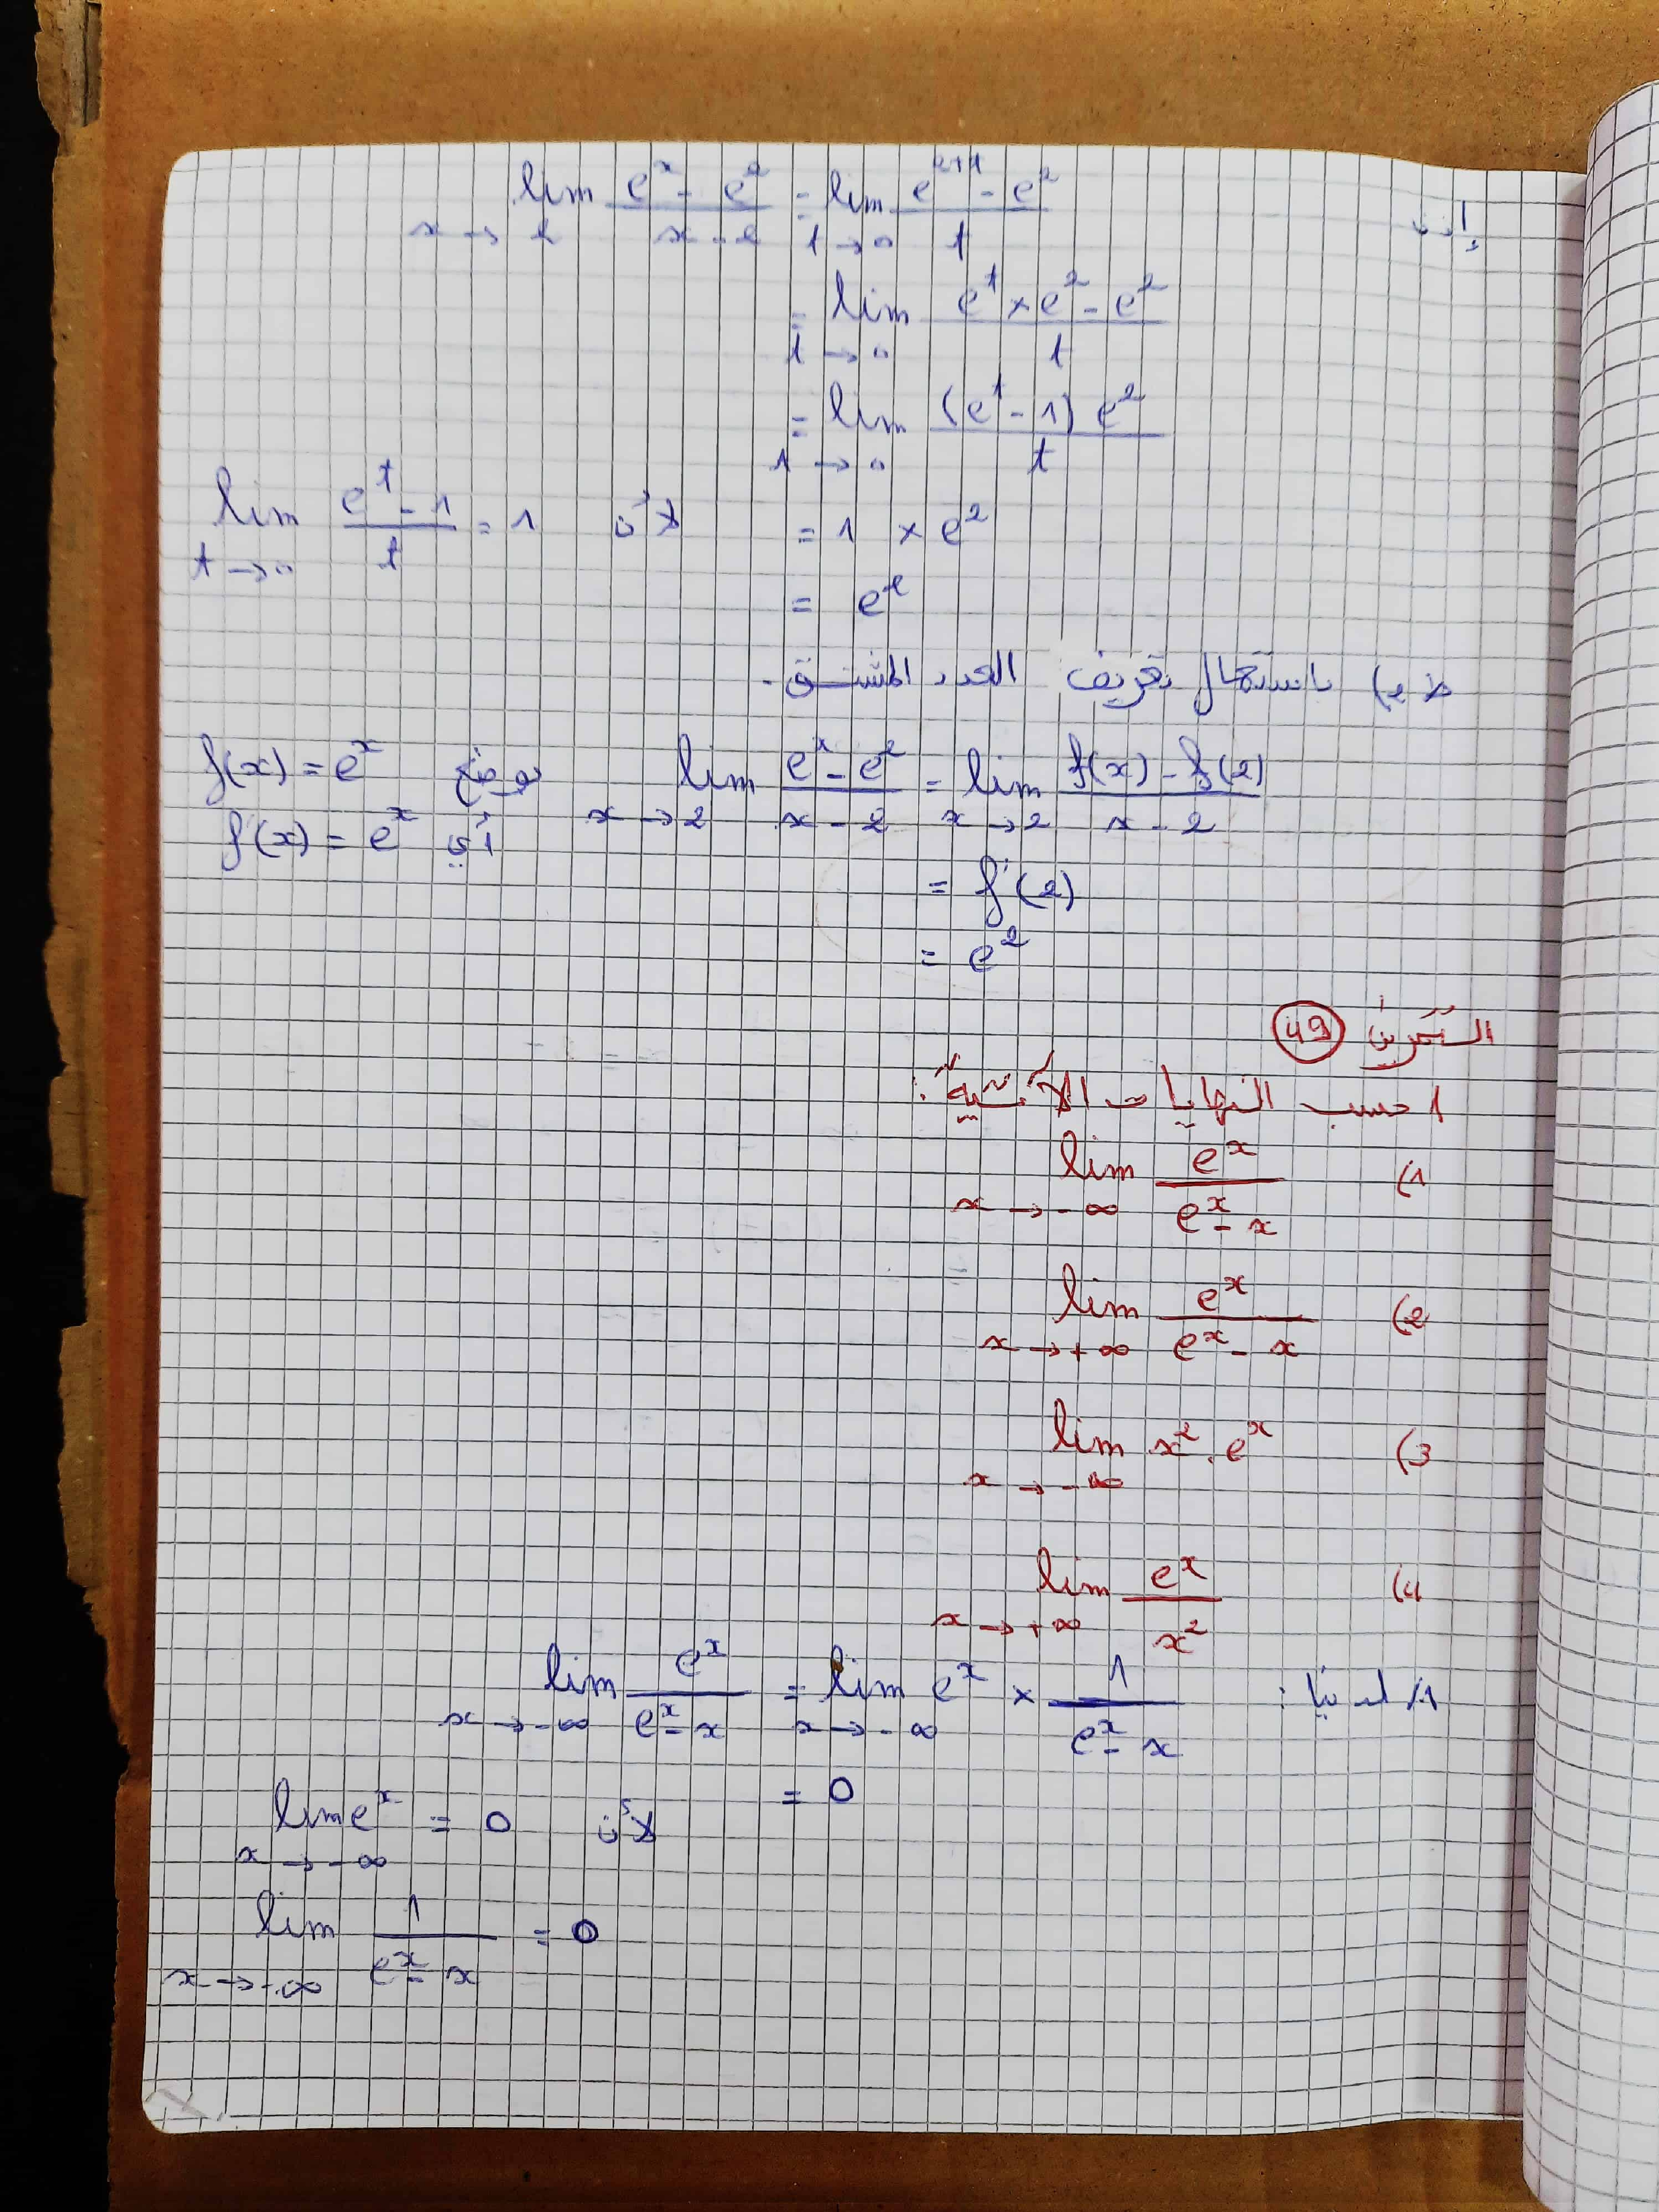 إذن lim x→2 (e^x - e^2)/(x - 2) = lim t→0 (e^(2+t) - e^2)/t
= lim t→0 (e^t × e^2 - e^2)/t
= lim t→0 (e^t - 1) e^2/t
= 1 × e^2 لأن lim t→0 (e^t - 1)/t = 1
= e^2
ط 2) باستعمال تعريف العدد المشتق.
lim x→2 (e^x - e^2)/(x - 2) = lim x→2 (f(x) - f(2))/(x - 2) بوضع f(x) = e^x
أي f'(x) = e^x
= f'(2)
= e^2
التمرين 49
احسب النهايات الآتية:
1) lim x→-∞ e^x/(e^x - x)
2) lim x→+∞ e^x/(e^x - x)
3) lim x→-∞ x^2 . e^x
4) lim x→+∞ e^x/x^2
1/ لدينا: lim x→-∞ e^x/(e^x - x) = lim x→-∞ e^x × 1/(e^x - x)
= 0
لأن lim x→-∞ e^x = 0
lim x→-∞ 1/(e^x - x) = 0